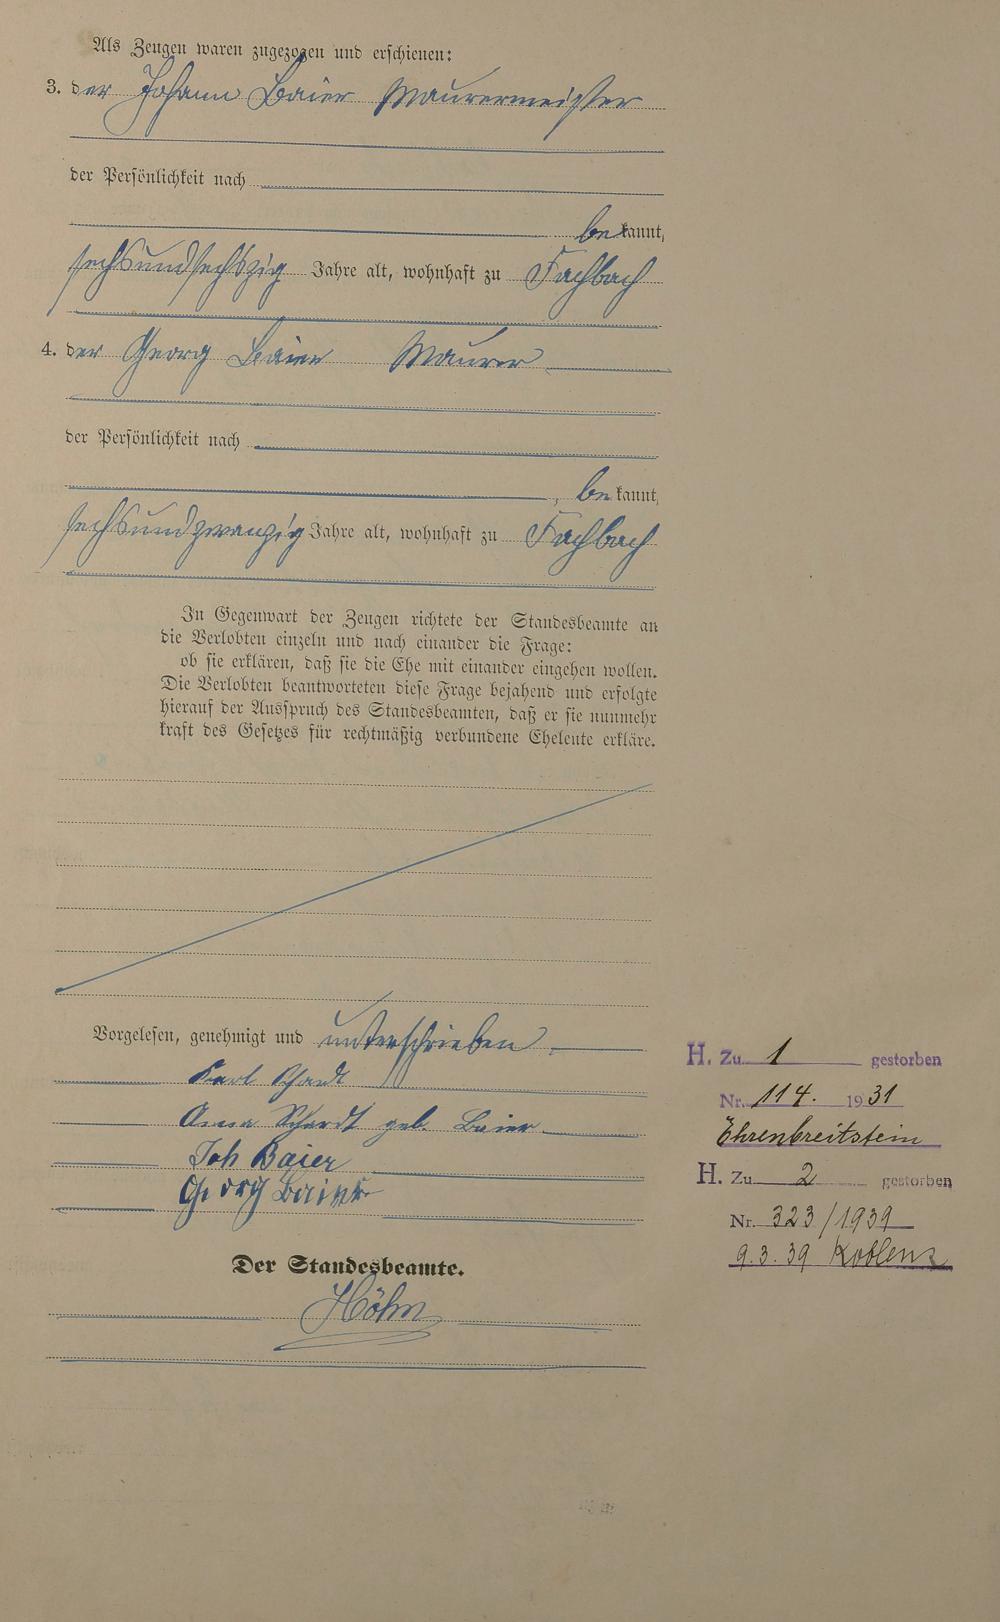 Als Zeugen waren zugezogen und erschienen:
3. der Johann Baier Maurermeister
der Persönlichkeit nach
bekannt,
sechsundsechszig Jahre alt, wohnhaft zu Fachbach
4. der Georg Baier Maurer
der Persönlichkeit nach
, bekannt,
sechsundzwanzig Jahre alt, wohnhaft zu Fachbach
In Gegenwart der Zeugen richtete der Standesbeamte an
die Verlobten einzeln und nach einander die Frage:
ob sie erklären, daß sie die Ehe mit einander eingehen wollen.
Die Verlobten beantworteten diese Frage bejahend und erfolgte
hierauf der Ausspruch des Standesbeamten, daß er sie nunmehr
kraft des Gesetzes für rechtmäßig verbundene Eheleute erkläre.
Vorgelesen, genehmigt und unterschrieben
Karl Schardt
Anna Schardt geb. Baier
Joh Baier
Georg Baier
Der Standesbeamte.
Höhn
H. Zu 1 gestorben
Nr. 114. 1931
Ehrenbreitstein
H. Zu 2 gestorben
Nr. 323/1939
9.3.39 Koblenz